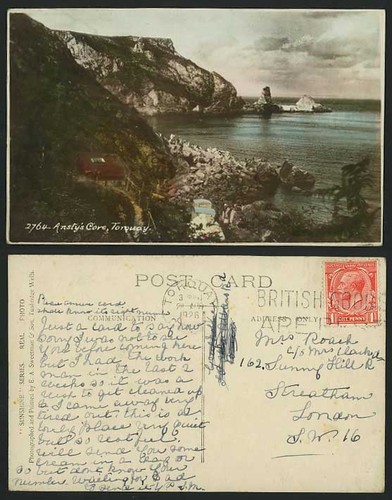 2764 Ansty's Cove, Torquay.
POST CARD
"SUNSHINE" SERIES REAL PHOTO
Photographed and Printed by E. A. Sweetman & Son, Tunbridge Wells.
COMMUNICATION
ADDRESS ONLY
TORQUAY
1926
BRITISH GOODS
ONE PENNY
Just a card to say how
sorry I was not to see
you before coming here
but I had the work
man in the last 2
weeks so it was a
rush to get cleaned up
& I came away very
tired out. this is a
lovely place very quiet
but so restful.
will send you some
cream in a day or
so but dont know your
number
Mrs Roach
c/o Mrs
162 Sunny Hill R
Streatham
London
S.W. 16